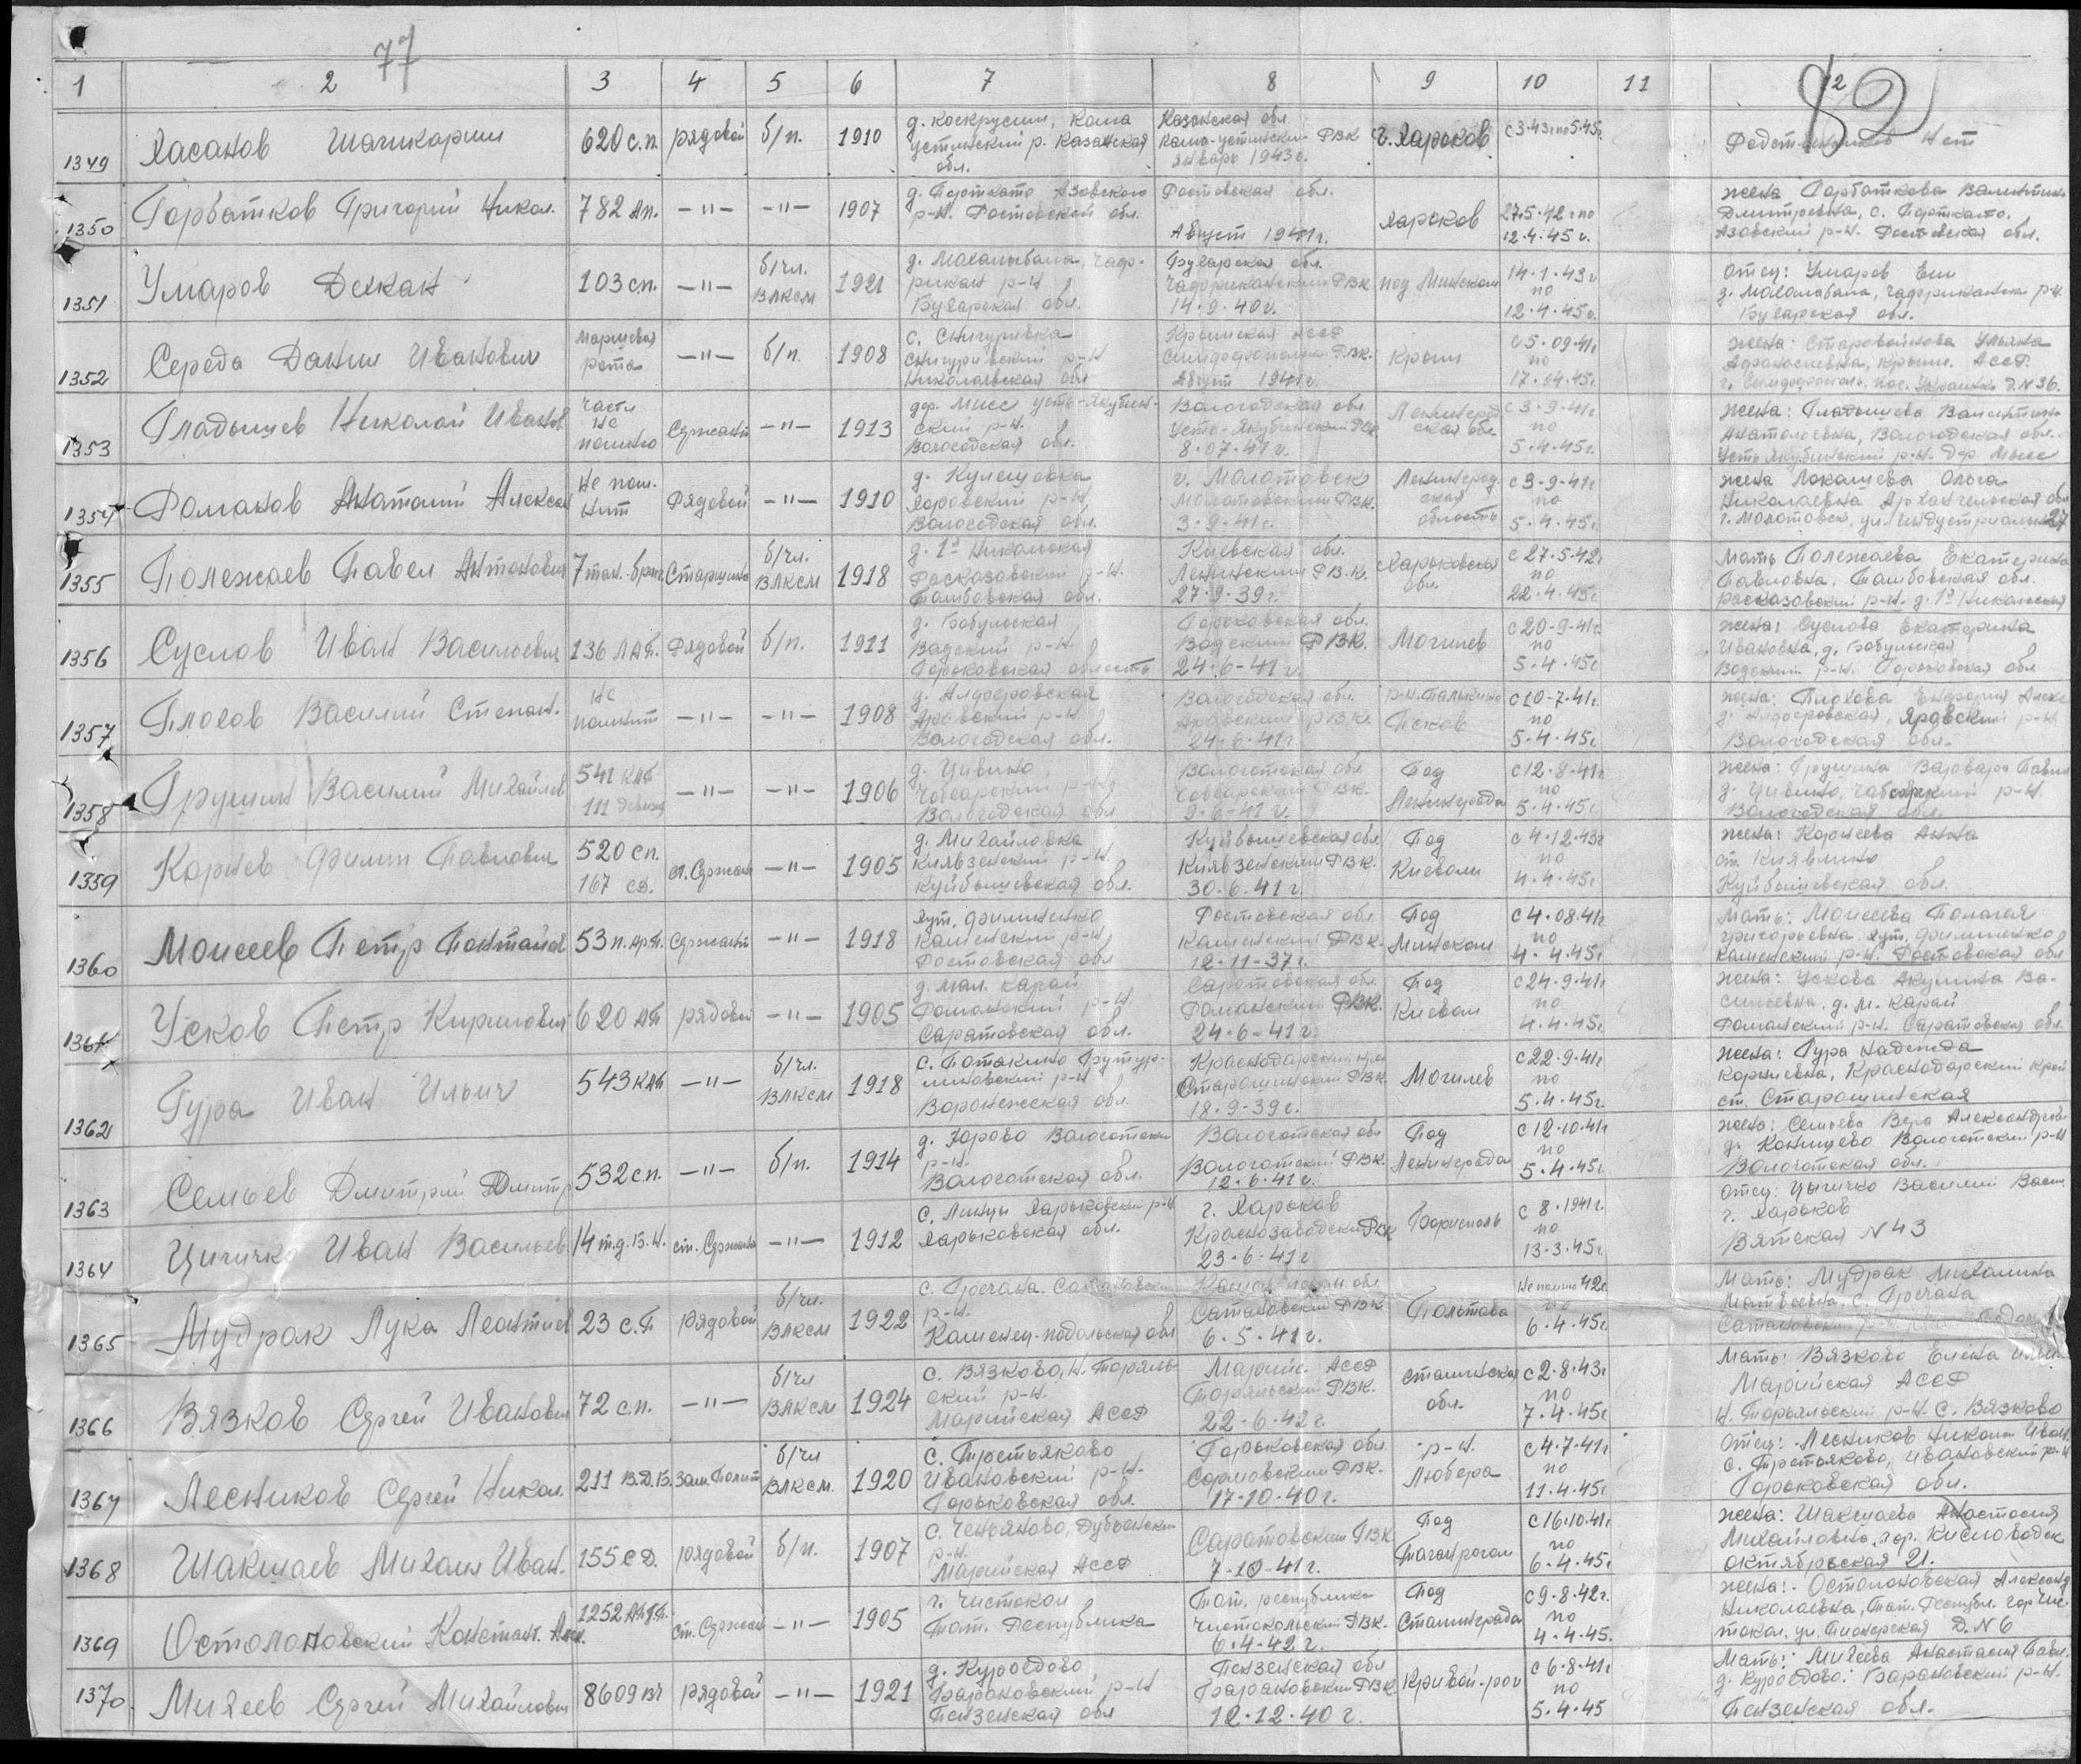 77
82
1 2 3 4 5 6 7 8 9 10 11 12
1349 Хасанов Шагикарим 620 с.п. рядовой б/п. 1910 д. Коскрусим, Кама Устинский р. Казанская обл. Казанская обл. Камо-Устински РВК Январь 1943г. г. Харьков с 3.43г по 5.45г. Родственников Нет
1350 Горбатков Григорий Никол. 782 Ап. -"- -"- 1907 д. Порткато Азовского р-н. Ростовской обл. Ростовская обл. Август 1941г. Харьков 27.5.42г по 12.4.45г. жена Горбаткова Валентина Дмитревна, с. Порткато. Азовский р-н. Ростовская обл.
1351 Умаров Дехкан 103 сп. -"- б/чл. ВЛКСМ 1921 д. Махалибала, Гадрикан р-н Бухарская обл. Бухарская обл. 14.9.40г. под Минском 14.1.43г по 12.4.45г. отец: Умаров р-н. Бухарская обл.
1352 Середа Данил Иванович маршевая рота -"- б/п. 1908 с. Снигуривка Снигуривский р-н Николаевская обл Крымская АССР Симферополск. РВК. Август 1941г. Крым с 5.09.41г по 17.04.45г. жена: Старовойтова Ульяна Афанасиевна, Крым. АССР. г. Симферополь, пос. Украинка Д. N 36.
1353 Гладышев Николай Иванов. части не помню Сержант -"- 1913 дер. Мысс Усть-Якубинский р-н. Вологодская обл. Вологодская обл Усть-Якубинский РВК 8.07.41г. Ленинградская обл с 3.9.41г по 5.4.45г. жена: Гладышева Валентина Анатолоевна, Вологодская обл. Усть Якубинский р-н. Дер. Мысс
1354 Романов Анатолий Алексан не помнит Рядовой -"- 1910 д. Кулешовка Харовский р-н Вологодская обл. г. Молотовск Молотовский РВК. 3.9.41г. Ленинградская область с 3-9-41г по 5.4.45г. жена Локашева Ольга Николаевна Архангельская обл г. Молотовск, ул. Индустриальн 27
1355 Полежаев Павел Антонович 7 тан. бриг. Старшина б/чл. ВЛКСМ 1918 д. 1я Никольская Расказовский р-н. Тамбовская обл. Киевская обл. Ленинский РВК. 27.9.39г. Харьковская обл. с 27.5.42г по 22.4.45г. Мать Полежаева Екатерина Павловна, Тамбовская обл. Расказовский р-н. д. 1я Никольская
1356 Суслов Иван Васильевич 136 ЛАП. Рядовой б/п. 1911 д. Бобульская Вадский р-н. Горьковская область Горьковская обл. Вадский РВК. 24.6-41г. Могилев с 20-9-41г по 5.4.45г жена: Суслова Екатерина Ивановна, д. Бобульская Вадский р-н. Горьковская обл
1357 Плохов Василий Степан. не помнит -"- -"- 1908 Вологодская обл. Вологодская обл. РВК 24.6.41г р-н. Палкино Псков с 10-7-41г. по 5.4.45г. жена: Плохова р-н Вологодская обл.
1358 Грушин Василий Михайлов 541 КАП 111 дивиз -"- -"- 1906 д. Цивино Чебсарский р-н Вологодская обл Вологотская обл Чебсарский РВК. 9.6-41г. Под Ленинграда с 12.8.41г по 5.4.45г. жена: Грушина Варвара Павл д. Цивино, Чебсарский р-н. Вологодская обл.
1359 Корнев Филип Павлович 520 сп. 167 сд. ст. Сержант -"- 1905 д. Михайловка Клявзенский р-н. Куйбышевская обл. Куйбышевская обл. Клявзенский РВК. 30.6.41г. Под Киевом с 4.12.43г по 4.4.45г. жена: Корнеева Анна ст. Клявлино Куйбышевская обл.
1360 Моисеев Петр Пантайл 53 п. Ар.П. Сержант -"- 1918 хут. Филипенко Каменский р-н. Ростовская обл Ростовская обл. Каменский РВК. 12-11-37г. Под Минском с 4.08.41г по 4.4.45г. Мать: Моисеева Полагея Григорьевна хут. Филипенко Каменский р-н. Ростовская обл
1361 Усков Петр Кирилович 620 АП рядовой -"- 1905 д. Мал. Карай Романский р-н. Саратовская обл. Саратовская обл. Романский РВК. 24-6-41г. Под Киевом с 24.9.41г по 4.4.45г. жена: Ускова Акулина Васильевна. д. М. Карай Романский р-н. Саратовская обл.
1362 Гура Иван Ильич 543 КАП -"- б/чл. ВЛКСМ 1918 с. Потакино Бутурлиновский р-н Воронежская обл. Краснодарский край Староминский РВК. 18-9-39г. Могилев с 22.9.41г по 5.4.45г. жена: Гура Надежда Корнеевна, Краснодарский край ст. Староминская
1363 Семьев Дмитрий Дмитр 532 сп. -"- б/п. 1914 д. Юрово Вологотский р-н. Вологотская обл. Вологотская обл Вологотский РВК. 12.6.41г. Под Ленинграда с 12.10.41г по 5.4.45г. жена: Семьева Вера Александровн д. Конищево Вологотский р-н Вологотская обл.
1364 Цигичко Иван Васильев. 14 т.д.В.Ч. ст. Сержант -"- 1912 с. Липцы Харьковский р-н Харьковская обл. г. Харьков Краснозаводский РВК 23.6-41г Борисполь с 8.1941г по 13.3.45г. отец: Цыгичко Василий Васил. г. Харьков Вятская N 43
1365 Мудрак Лука Леонтиев 23 с.п рядовой б/чл. ВЛКСМ 1922 с. Гречана Сатановский р-н. Каменец-подольская обл Каменец-подол обл Сатановский РВК 6.5.41г. Полтава не помню 42г. по 6.4.45г. Мать: Мудрак Михалина Матвеевна, с. Гречана
1366 Вязков Сергей Иванович 72 с.п. -"- б/чл ВЛКСМ 1924 с. Вязково, Н. Торяльский р-н. Марийская АССР Марийс. АССР Торяльский РВК. 22-6-42г. Сталинская обл. с 2.8.43г по 7.4.45г Мать: Вязково Елена Марийская АССР Н. Торьяльский р-н. с. Вязково
1367 Лесников Сергей Никол. 211 В.Д.Б. Зам. Полит б/чл ВЛКСМ. 1920 с. Третьяково Ивановский р-н. Горьковская обл. Горьковская обл. Сормовский РВК. 17-10-40г. р-н. Любера с 4.7.41г. по 11.4.45г. Отец: Лесников Николай Иван. с. Третьяково, Ивановский р-н Горьковская обл.
1368 Шакшаев Михаил Иван. 155 с.д. рядовой б/п. 1907 с. Ченьяново, Дубьянский р-н. Марийская АССР Саратовский РВК 7-10-41г. Под Таганрогом с 16.10.41г. по 6.4.45г. жена: Шакшаева Анастасия Михайловна, гор. Кисловодск Октябрьская 21.
1369 Остолоповский Констант. Алек. 1252 Ст. Сержант -"- 1905 г. Чистокол Тат. Республика Тат. республика Чистокольский РВК. 6.4-42г. Под Сталинграда с 9.8.42г. по 4.4.45. жена: Остолоповская Александ Николаевна, Тат. Республ. гор Чистокол. ул. Пионерская Д. N 6
1370. Михеев Сергей Михайлович 8609 вч рядовой -"- 1921 д. Куроедово Барановский р-н Пензенская обл Пензенская обл Барановский РВК 12.12.40г. Кривой-рог с 6.8.41г по 5.4.45 Мать: Михеева Анастасия Павл. д. Куроедово: Барановский р-н. Пензенская обл.